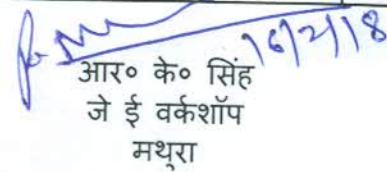 16/2/18
आर० के० सिंह
जे ई वर्कशॉप
मथुरा